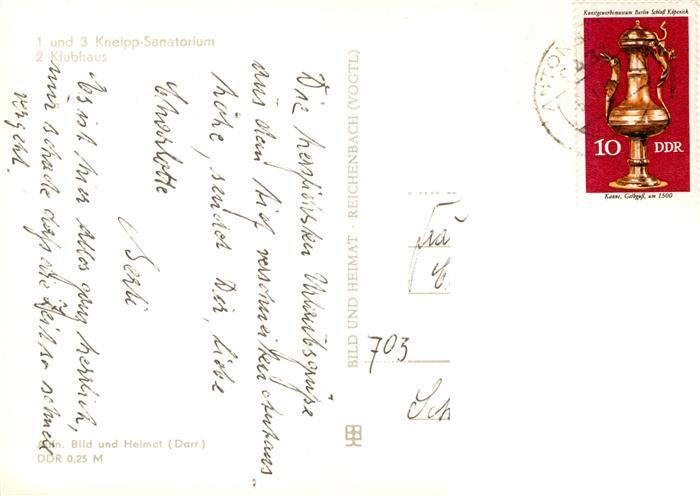 1 und 3 Kneipp-Sanatorium
2 Klubhaus
Die herzlichsten Urlaubsgrüße
aus dem tief verschneiten Antons-
höhe, sendet Dir, liebe
Charlotte
Es ist hier alles ganz herrlich,
nur schade daß die Zeit so schnell
vergeht.
Aufn. Bild und Heimat (Darr)
DDR 0,25 M
BILD UND HEIMAT · REICHENBACH (VOGTL)
Kunstgewerbemuseum Berlin Schloß Köpenick
10 DDR
Kanne, Gelbguß, um 1500
703
Sch